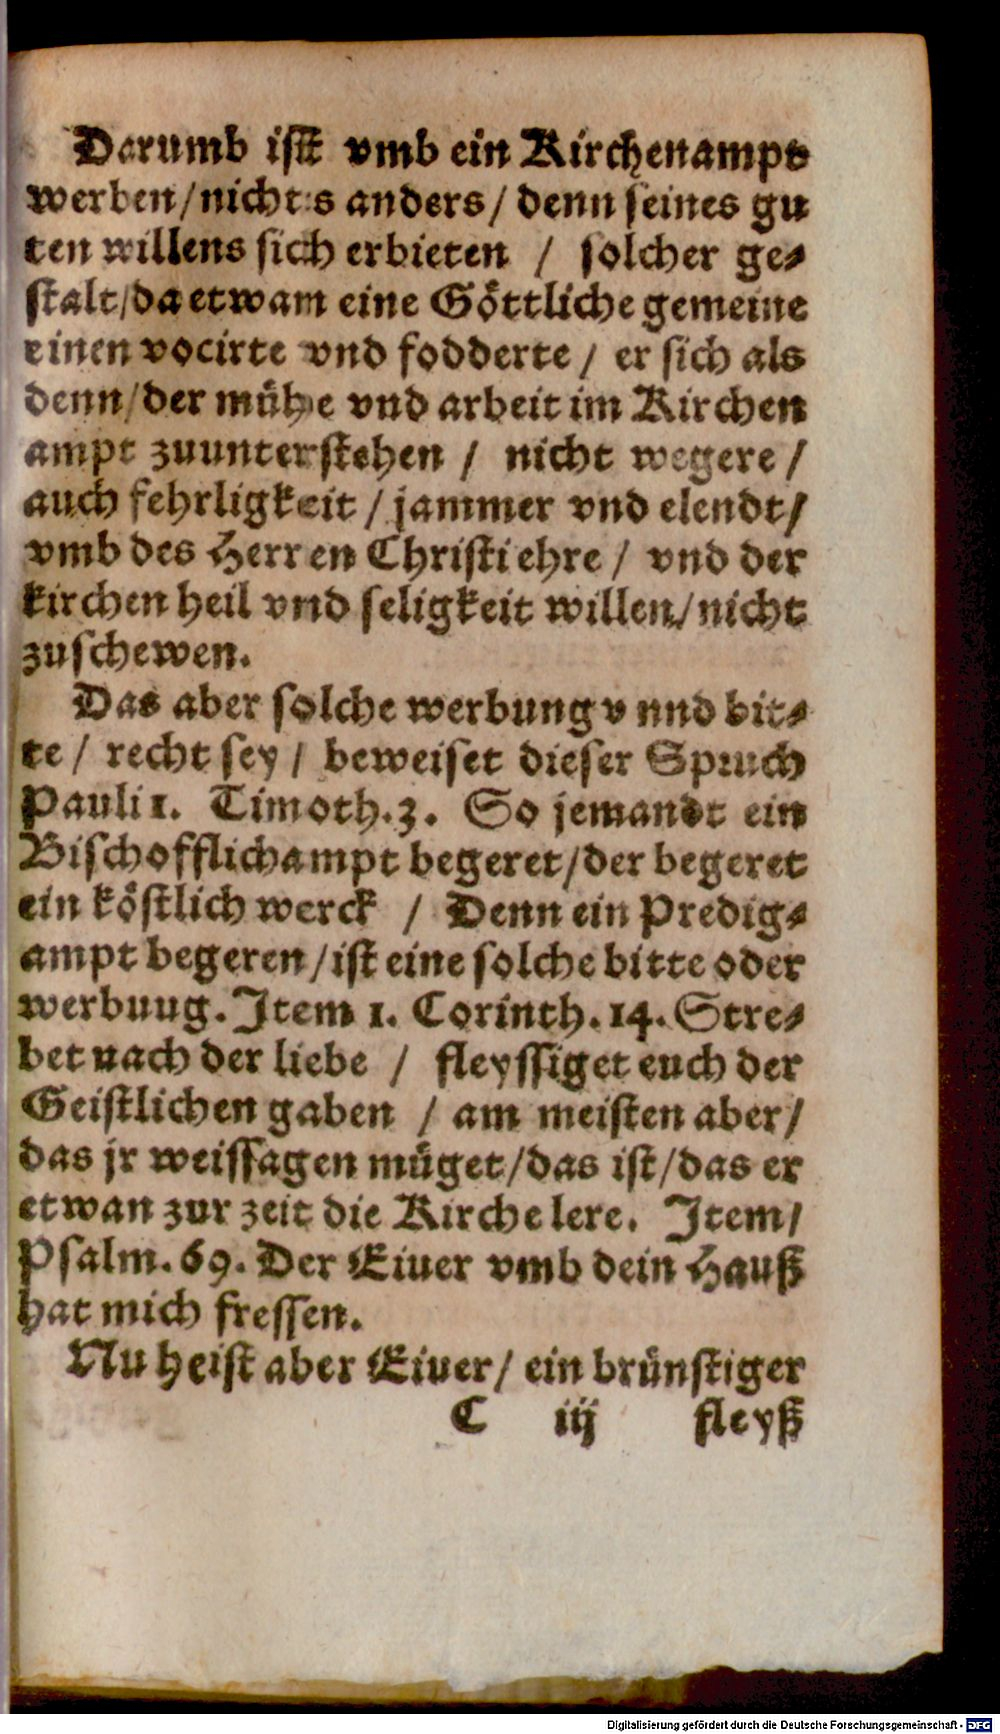 Darumb ist vmb ein Kirchenampt
werben / nichts anders / denn seines gu
ten willens sich erbieten / solcher ge-
stalt / da etwam eine Göttliche gemeine
einen vocirte vnd fodderte / er sich als
denn / der mühe vnd arbeit im Kirchen
ampt zuunterstehen / nicht wegere /
auch fehrligkeit / jammer vnd elendt /
vmb des Herren Christi ehre / vnd der
kirchen heil vnd seligkeit willen / nicht
zuschewen.
Das aber solche werbung vnnd bit-
te / recht sey / beweiset dieser Spruch
Pauli 1. Timoth. 3. So jemandt ein
Bischofflich ampt begeret / der begeret
ein köstlich werck / Denn ein Predig-
ampt begeren / ist eine solche bitte oder
werbuug. Item 1. Corinth. 14. Stre-
bet nach der liebe / fleyssiget euch der
Geistlichen gaben / am meisten aber /
das jr weissagen müget / das ist / das er
etwan zur zeit die Kirche lere. Item /
Psalm. 69. Der Eiuer vmb dein Hauß
hat mich fressen.
Nu heist aber Eiuer / ein brünstiger
C iij fleyß
Digitalisierung gefördert durch die Deutsche Forschungsgemeinschaft - DFG